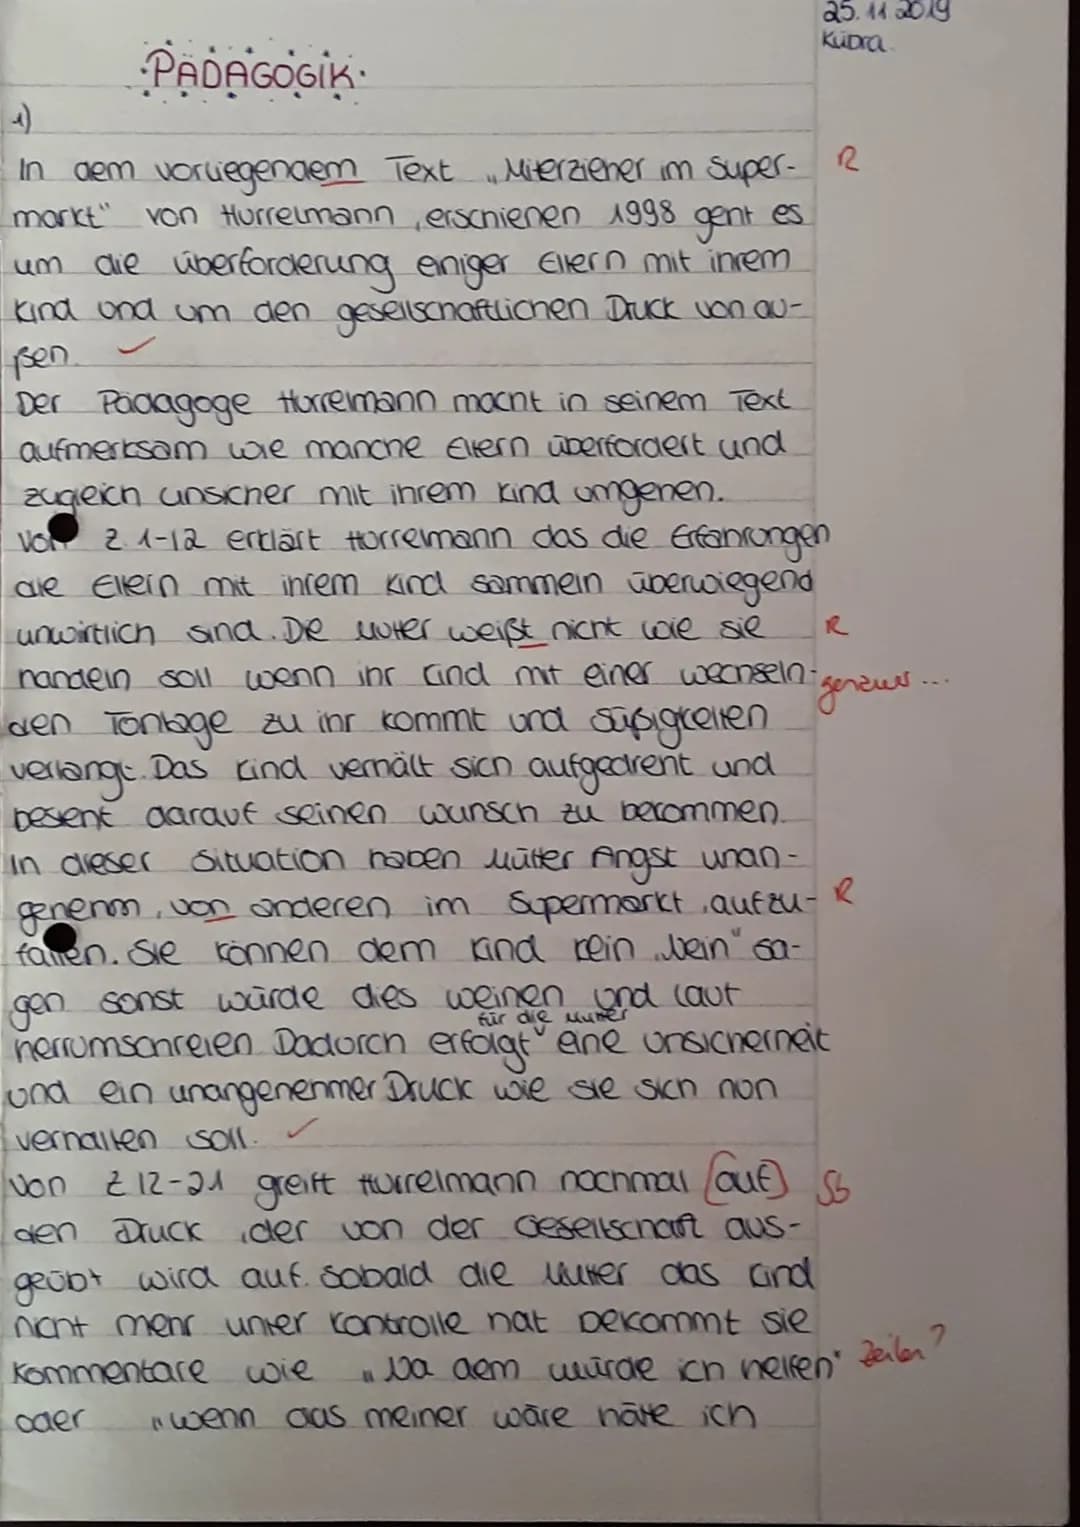 25.11.2019
Kübra.
PÄDAGOGIK
1)
In dem vorliegendem Text „Miterzieher im Super- R
markt" von Hurrelmann, erschienen 1998 geht es
um die überforderung einiger Eltern mit ihrem
Kind und um den gesellschaftlichen Druck von au-
ßen.
Der Pädagoge Hurrelmann macht in seinem Text
aufmerksam wie manche Eltern überfordert und
zugleich unsicher mit ihrem Kind umgehen.
Von Z.1-12 erklärt Hurrelmann das die Erfahrungen
die Eltern mit ihrem Kind sammeln überwiegend
unwirtlich sind. Die Mutter weißt nicht wie sie R
handeln soll wenn ihr Kind mit einer wechseln- genauer...
den Tonlage zu ihr kommt und Süßigkeiten
verlangt. Das Kind verhält sich aufgedreht und
beseht darauf seinen wunsch zu bekommen.
In dieser Situation haben Mütter Angst unan-
genehm, von anderen im Supermarkt, aufzu- R
fallen. Sie können dem Kind kein „Nein" sa-
gen sonst würde dies weinen und laut
für die Mutter
herrumschreien. Dadurch erfolgt eine unsicherheit
und ein unangenehmer Druck wie sie sich nun
verhalten soll.
Von Z 12-21 greift Hurrelmann nochmal (auf) Sb
den Druck, der von der Gesellschaft aus-
geübt wird auf. Sobald die Mutter das Kind
nicht mehr unter Kontrolle hat bekommt sie
Kommentare wie „Na dem würde ich helfen" Zeilen?
oder „wenn das meiner wäre häte ich